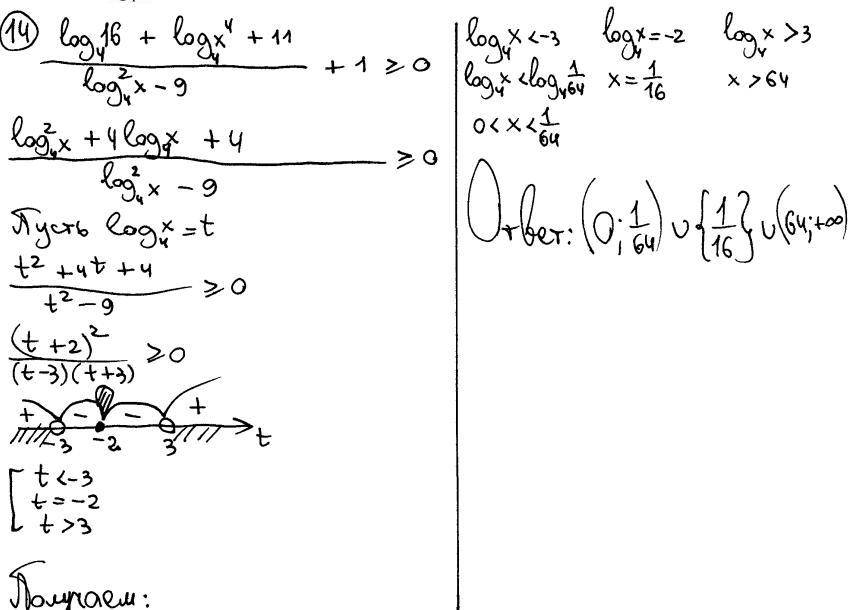 14
log₄16 + log₄x⁴ + 11 / log₄²x - 9 + 1 ⩾ 0
log₄²x + 4log₄x + 4 / log₄²x - 9 ⩾ 0
Пусть log₄x = t
t² + 4t + 4 / t² - 9 ⩾ 0
(t + 2)² / (t-3)(t+3) ⩾ 0
+ - - +
-3 -2 3 t
[ t < -3
t = -2
t > 3
Получаем:
log₄x < -3 log₄x = -2 log₄x > 3
log₄x < log₄ 1/64 x = 1/16 x > 64
0 < x < 1/64
Ответ: (0; 1/64) ∪ {1/16} ∪ (64; +∞)